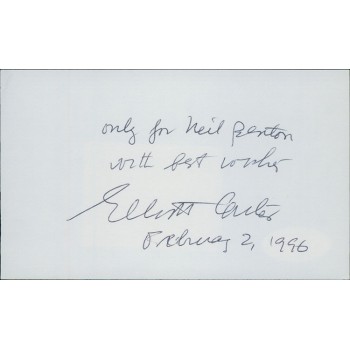 only for Neil Benton
with best wishes
Elliott Carter
February 2, 1996